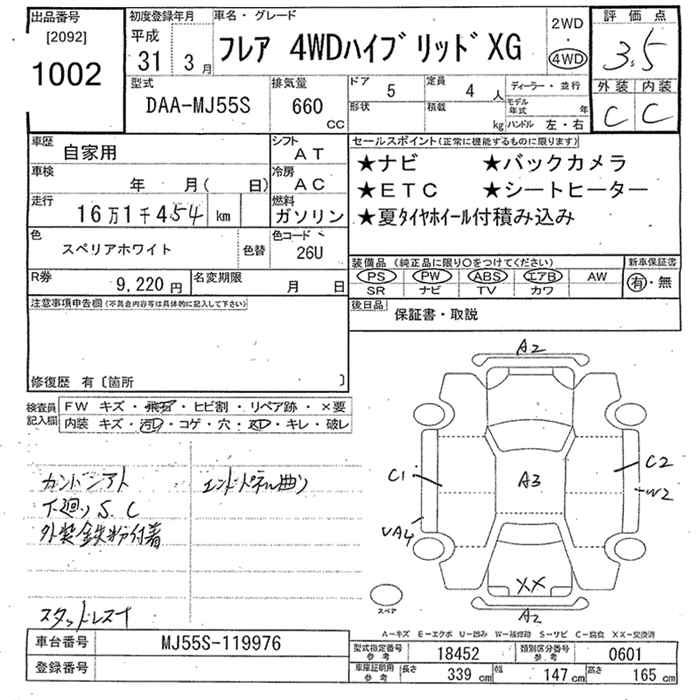 出品番号 初度登録年月 車名・グレード 2WD 評価点
[2092] 平成 ・
1002 31年 3月 フレア 4WDハイブリッドXG 4WD 3.5
型式 排気量 ドア 5 定員 4人 ディーラー・並行 外装 内装
DAA-MJ55S 660 CC 形状 積載 kg モデル年式 年 C C
ハンドル 左・右
車歴 自家用 シフト AT セールスポイント(正常に機能するものに限ります)
車検 年 月( 日) 冷房 AC ★ナビ ★バックカメラ
走行 16万1千454 km 燃料 ガソリン ★ETC ★シートヒーター
★夏タイヤホイール付積み込み
色 スペリアホワイト 色替 色コード 26U
装備品(純正品に限り○をつけてください) 新車保証書
R券 9,220円 名変期限 月 日 PS PW ABS エアB AW 有・無
SR ナビ TV カワ
注意事項申告欄(不具合内容等は具体的に記入して下さい) 後日品 保証書・取説
修復歴 有〔箇所 〕
検査員記入欄 FW キズ・飛石・ヒビ割・リペア跡・×要
内装 キズ・汚レ・コゲ・穴・スレ・キレ・破レ
A2
カンドンアト エンドパネル曲り
C1 A3 C2
下廻りS.C W2
外装鉄粉付着 UA4
XX
スペア
スタッドレス A2
A-キズ E-エクボ U-凹み W-補修跡 S-サビ C-腐食 XX-交換済
車台番号 MJ55S-119976 型式指定番号 参考 18452 類別区分番号 参考 0601
登録番号 車庫証明用 参考 長さ 339 cm 幅 147 cm 高さ 165 cm